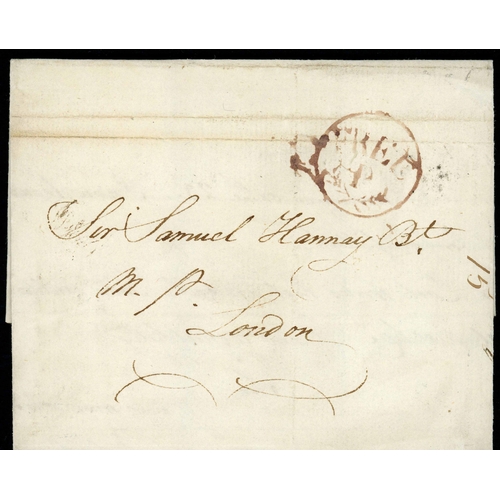 FREE
P
Sir Samuel Hannay Bt.
M. P.
London
15